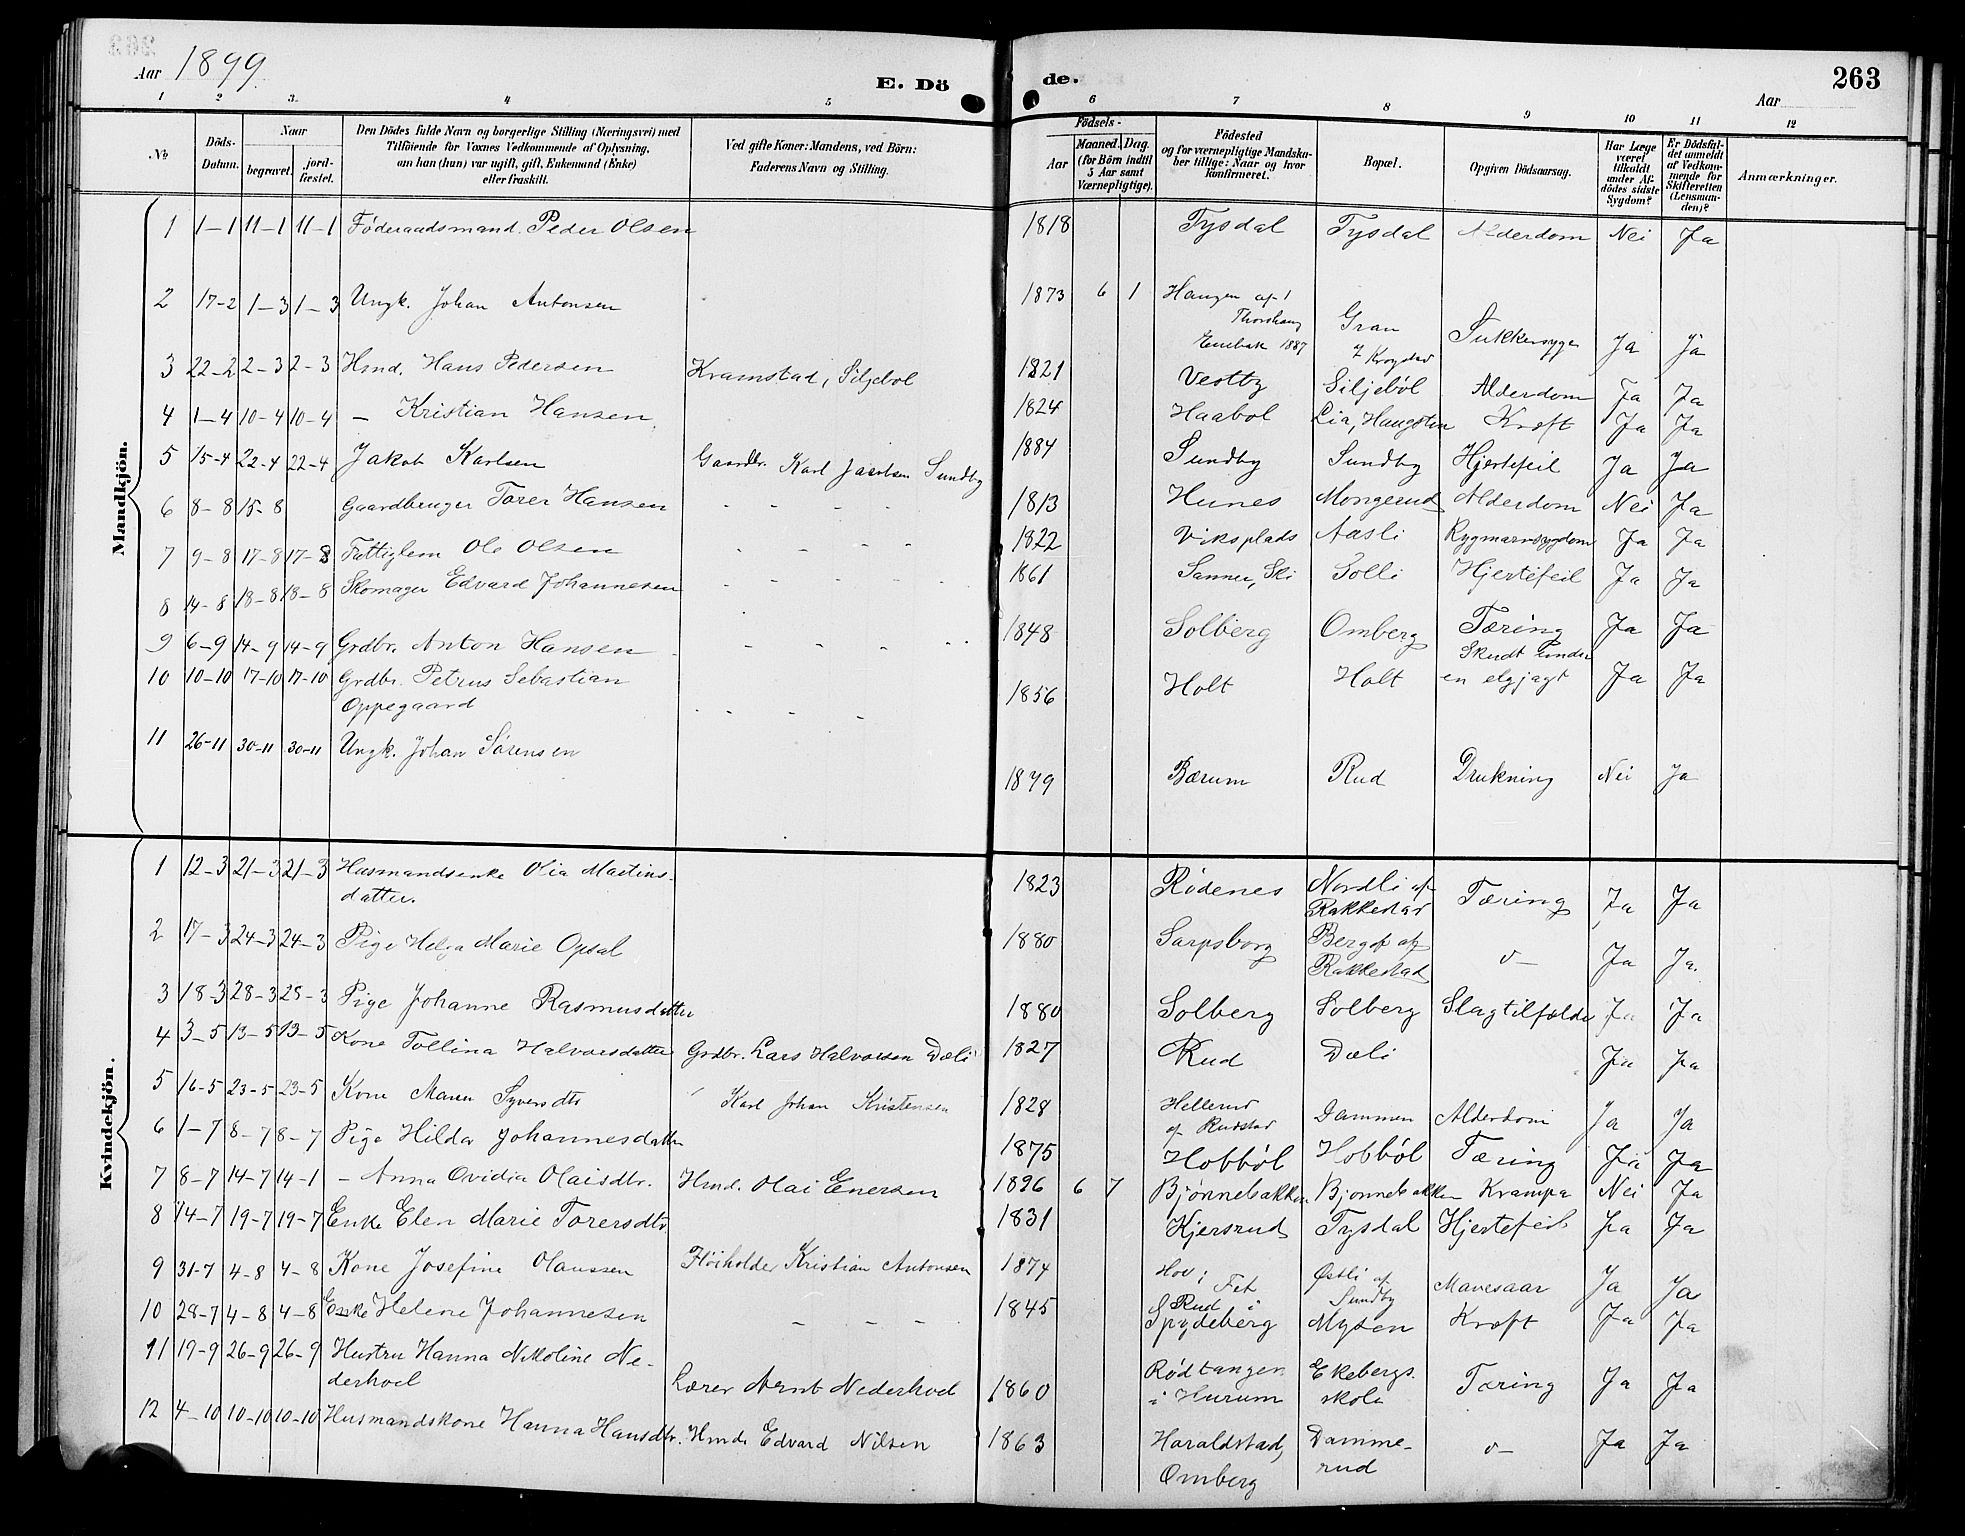 Aar 1899.
E. Dö
de.
Aar
263
1 2 3. 4 5 6 7 8 9 10 11 12
No
Döds-Datum.
Naar
begravet.
jord-fæstet.
Den Dödes fulde Navn og borgerlige Stilling (Næringsvei) med
Tilföiende for Voxnes Vedkommende af Oplysning,
om han (hun) var ugift, gift, Enkemand (Enke)
eller fraskilt.
Ved gifte Koner: Mandens, ved Börn:
Faderens Navn og Stilling.
Födsels-
Aar
Maaned. Dag.
(for Börn indtil
5 Aar samt
Værnepligtige).
Födested
og for værnepligtige Mandska-
ber tillige: Naar og hvor
konfirmeret.
Bopæl.
Opgiven Dödsaarsag.
Har Læge
været
tilkaldt
under Af-
dödes sidste
Sygdom?
Er Dödsfal-
det anmeldt
af Vedkom-
mende for
Skifteretten
(Lensman-
den)?
Anmærkninger.
Mandkjön.
1 1-1 11-1 11-1 Føderaadsmand. Peder Olsen 1818 Tysdal Tysdal Alderdom Nei Ja
2 17-2 1-3 1-3 Ungk. Johan Antonsen 1873 6 1 Haugen af
Enebak 1887 Gran Sukkersyge Ja Ja
3 22-2 2-3 2-3 Hmd. Hans Pedersen Kramstad, Siljebol 1821 Vestby Siljebøl Alderdom Ja Ja
4 1-4 10-4 10-4 — Kristian Hansen, 1824 Haabol Lia, Kræft Ja Ja
5 15-4 22-4 22-4 Jakob Karlsen Gaardbr. Karl Jacobsen Sundby 1884 Sundby Sundby Hjertefeil Ja Ja
6 8-8 15-8 Gaardbruger Torer Hansen - - - - 1813 Hunes Mongerud Alderdom Nei Ja
7 9-8 17-8 17-8 Fattiglem Ole Olsen - - - - 1822 Viksplads Aasli Rygmarvsygdom Ja Ja
8 14-8 18-8 18-8 Skomager Edvard Johannesen - - - - 1861 Sanner, Ski Solli Hjertefeil Ja Ja
9 6-9 14-9 14-9 Grdbr. Anton Hansen - - - - 1848 Solberg Omberg Tæring Ja Ja
10 10-10 17-10 17-10 Grdbr. Petrus Sebastian
Oppegaard - - - 1856 Holt Holt Skudt under
en elgjagt Ja Ja
11 26-11 30-11 30-11 Ungk. Johan Sørensen 1879 Bærum Rud Drukning Nei Ja
Kvindekjön.
1 12-3 21-3 21-3 Husmandsenke Olia Martins-
datter. 1823 Rødenes Nordli af
Rakkestad Tæring Ja Ja
2 17-3 24-3 24-3 Pige Helga Marie Opsal 1880 Sarpsborg af
Rakkestad v— Ja Ja.
3 18-3 28-3 28-3 Pige Johanne Rasmusdatter 1880 Solberg Solberg Slagtilfælde Ja Ja
4 3-5 13-5 13-5 Kone Tollina Halvorsdatter Grdbr. Lars Halvorsen Dæli 1827 Rud Dæli Ja Ja
5 16-5 23-5 23-5 Kone Maren Syversdtr Karl Johan Kristensen 1828 Hellerud
af Rudstad Dammen Alderdom Ja Ja
6 1-7 8-7 8-7 Pige Hilda Johannesdatter 1875 Hobbøl Hobbøl Tæring Ja Ja
7 8-7 14-7 14-1 — Anna Ovidia Olaisdtr. Hmd. Olai Enersen 1896 6 7 Bjønnebakken Bjønnebakken Krampe Nei Ja
8 14-7 19-7 19-7 Enke Elen Marie Torersdtr 1831 Kjersrud Tysdal Hjertefeil Ja Ja
9 31-7 4-8 4-8 Kone Josefine Olaussen Fløiholder Kristian Antonsen 1874 Hov i
Fet Østli af
Sundby Mavesaar Ja Ja
10 28-7 4-8 4-8 Enke Helene Johannesen - - - - 1845 Rud i
Spydeberg Mysen Kræft Ja Ja
11 19-9 26-9 26-9 Hustru Hanna Nikoline Ne-
derhoel Lærer Arnt Nederhoel 1860 Rødtangen
i Hurum Ekebergs
skole Tæring Ja Ja
12 4-10 10-10 10-10 Husmandskone Hanna Hansdtr. Hmd. Edvard Nilsen 1863 Haraldstad,
Omberg Damme-
rud v— Ja Ja